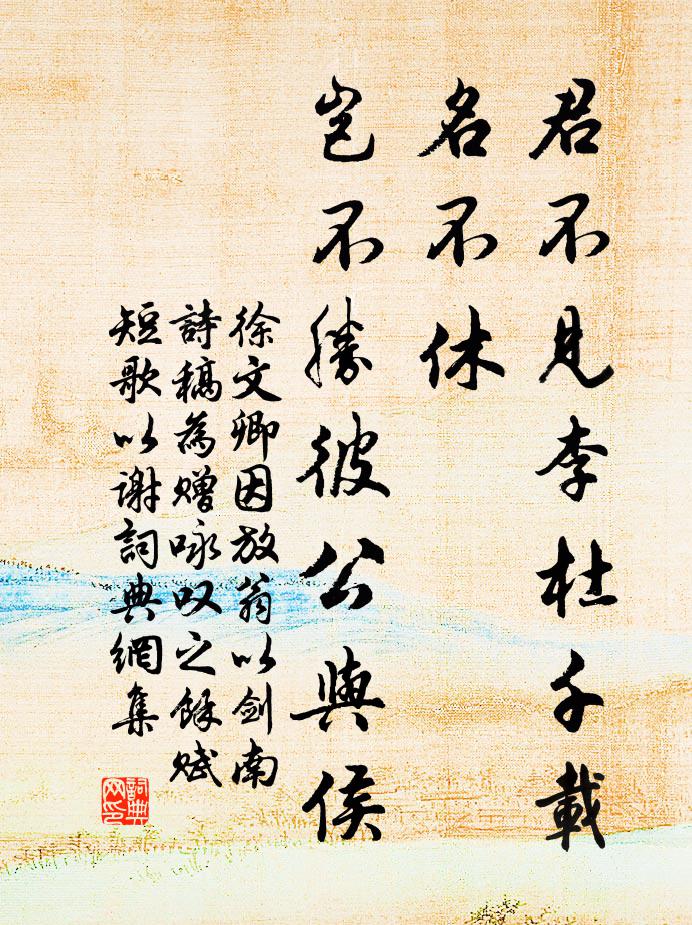 君不見李杜千載
名不休
豈不勝彼公與侯
徐文卿因放翁以劍南
詩稿為贈咏叹之餘赋
短歌以谢詞典網集
詞典
网印